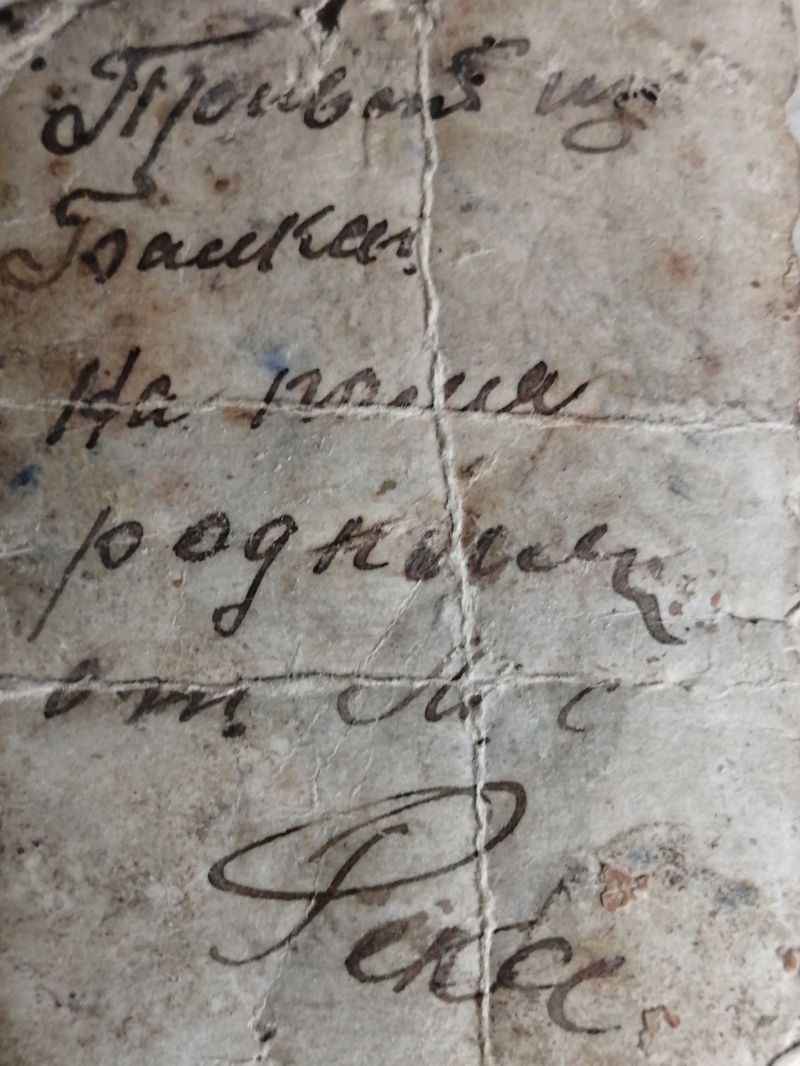 Привет из
Банки
На память
родным
от М с
Рекс